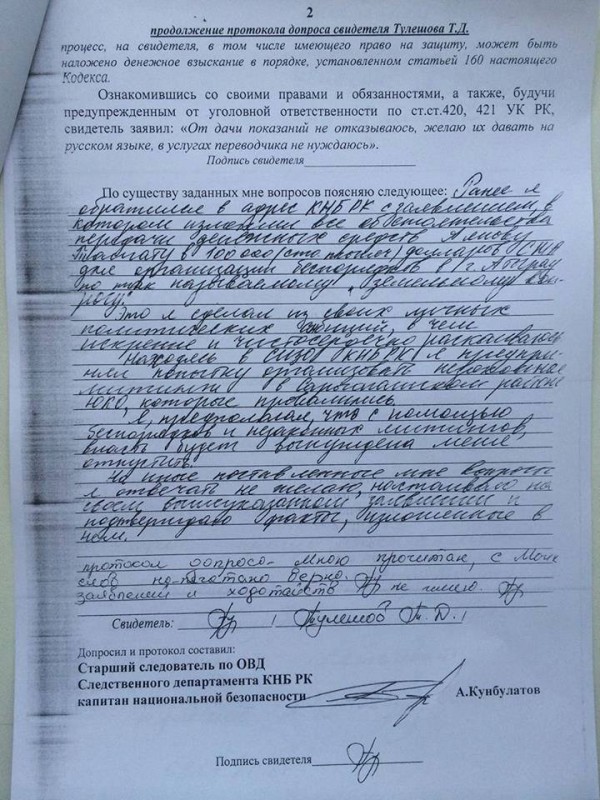 2
продолжение протокола допроса свидетеля Тулешова Т.Д.
процесс, на свидетеля, в том числе имеющего право на защиту, может быть
наложено денежное взыскание в порядке, установленном статьей 160 настоящего
Кодекса.
Ознакомившись со своими правами и обязанностями, а также, будучи
предупрежденным от уголовной ответственности по ст.ст.420, 421 УК РК,
свидетель заявил: «От дачи показаний не отказываюсь, желаю их давать на
русском языке, в услугах переводчика не нуждаюсь».
Подпись свидетеля
По существу заданных мне вопросов поясняю следующее: Ранее я
обратился в адрес КНБ РК с заявлением, в
котором изложил все обстоятельства
передачи денежных средств Аянову
Талгату в 100 000 (сто тысяч) долларов США
для организации беспорядков в г. Атырау
по так называемому „Земельному воп-
росу".
Это я сделал из своих личных
политических амбиций, в чем
искренне и чистосердечно раскаиваюсь
Находясь в СИЗО КНБ РК я предпри-
нял попытку организовать незаконные
митинги в Сарыагашском районе
ЮКО, которые провалились
Я, предполагал, что с помощью
беспорядков и незаконных митингов,
власть будет вынуждена меня
отпустить.
На иные поставленные мне вопросы
я отвечать не желаю, настаиваю на
своем вышеуказанном заявлении и
подтверждаю факты, изложенные в
нем.
протокол допроса мною прочитан, с моих
слов напечатано верно.
заявлений и ходатайств не имею.
Свидетель: / Тулешов Т.Д. /
Допросил и протокол составил:
Старший следователь по ОВД
Следственного департамента КНБ РК
капитан национальной безопасности А.Кунбулатов
Подпись свидетеля